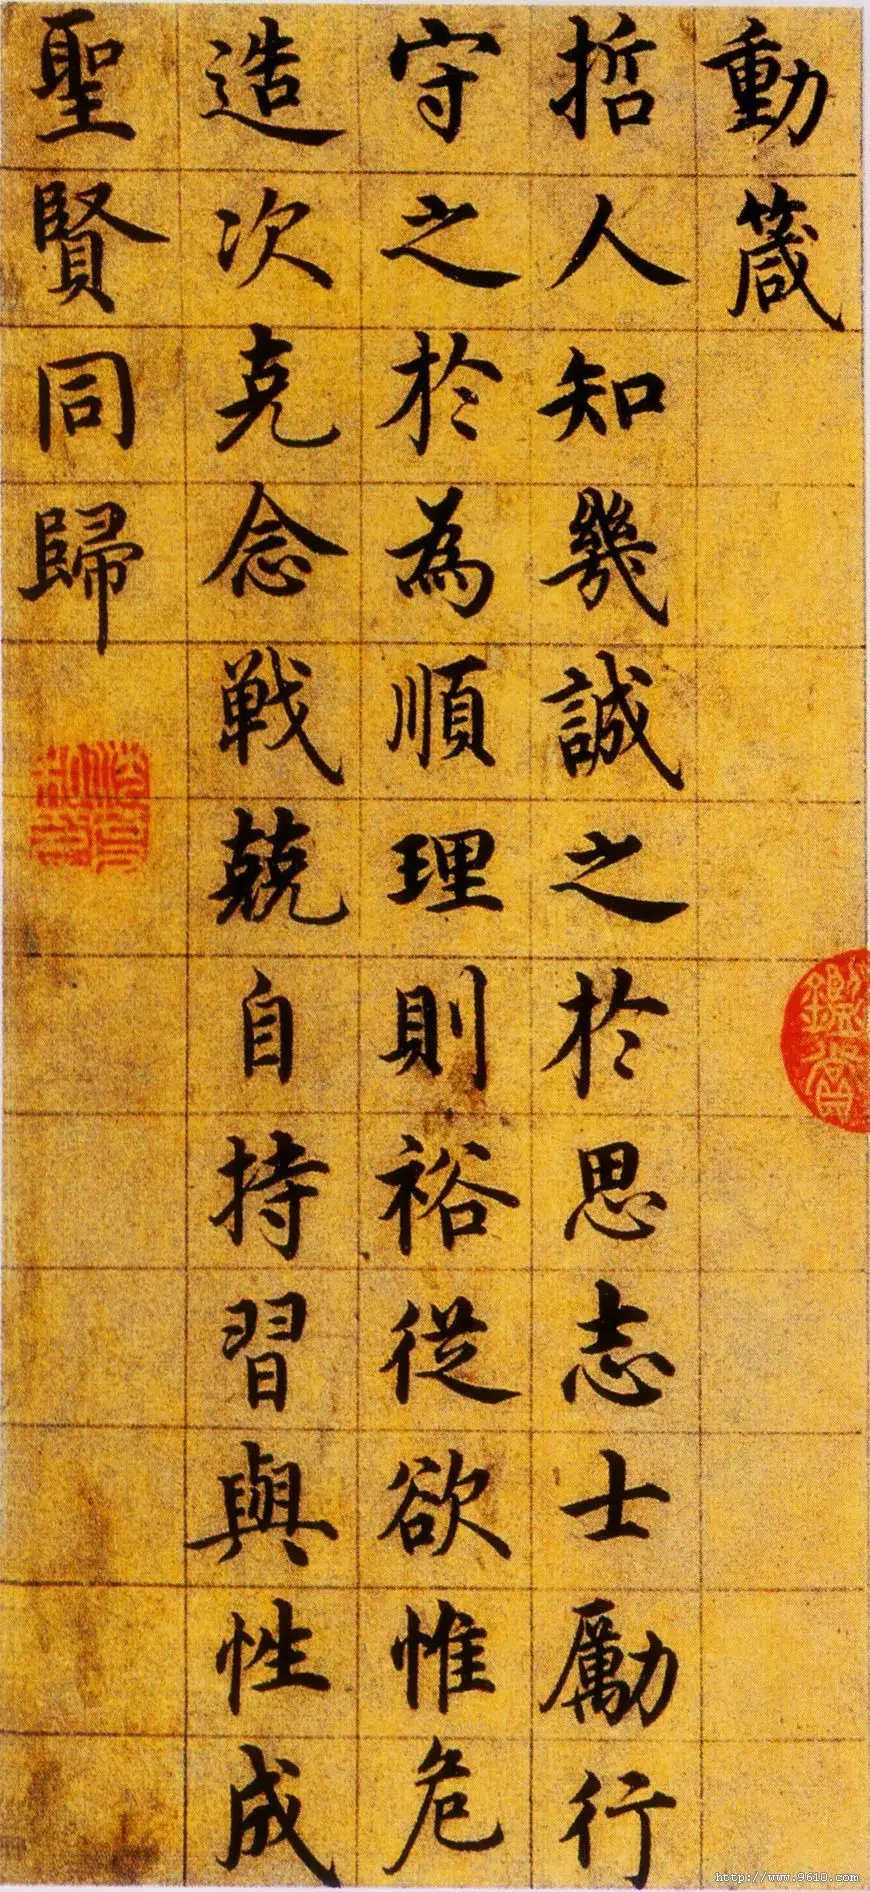 動箴
哲人知幾誠之於思志士勵行
守之於為順理則裕從欲惟危
造次克念戰兢自持習與性成
聖賢同歸
http://www.9610.com